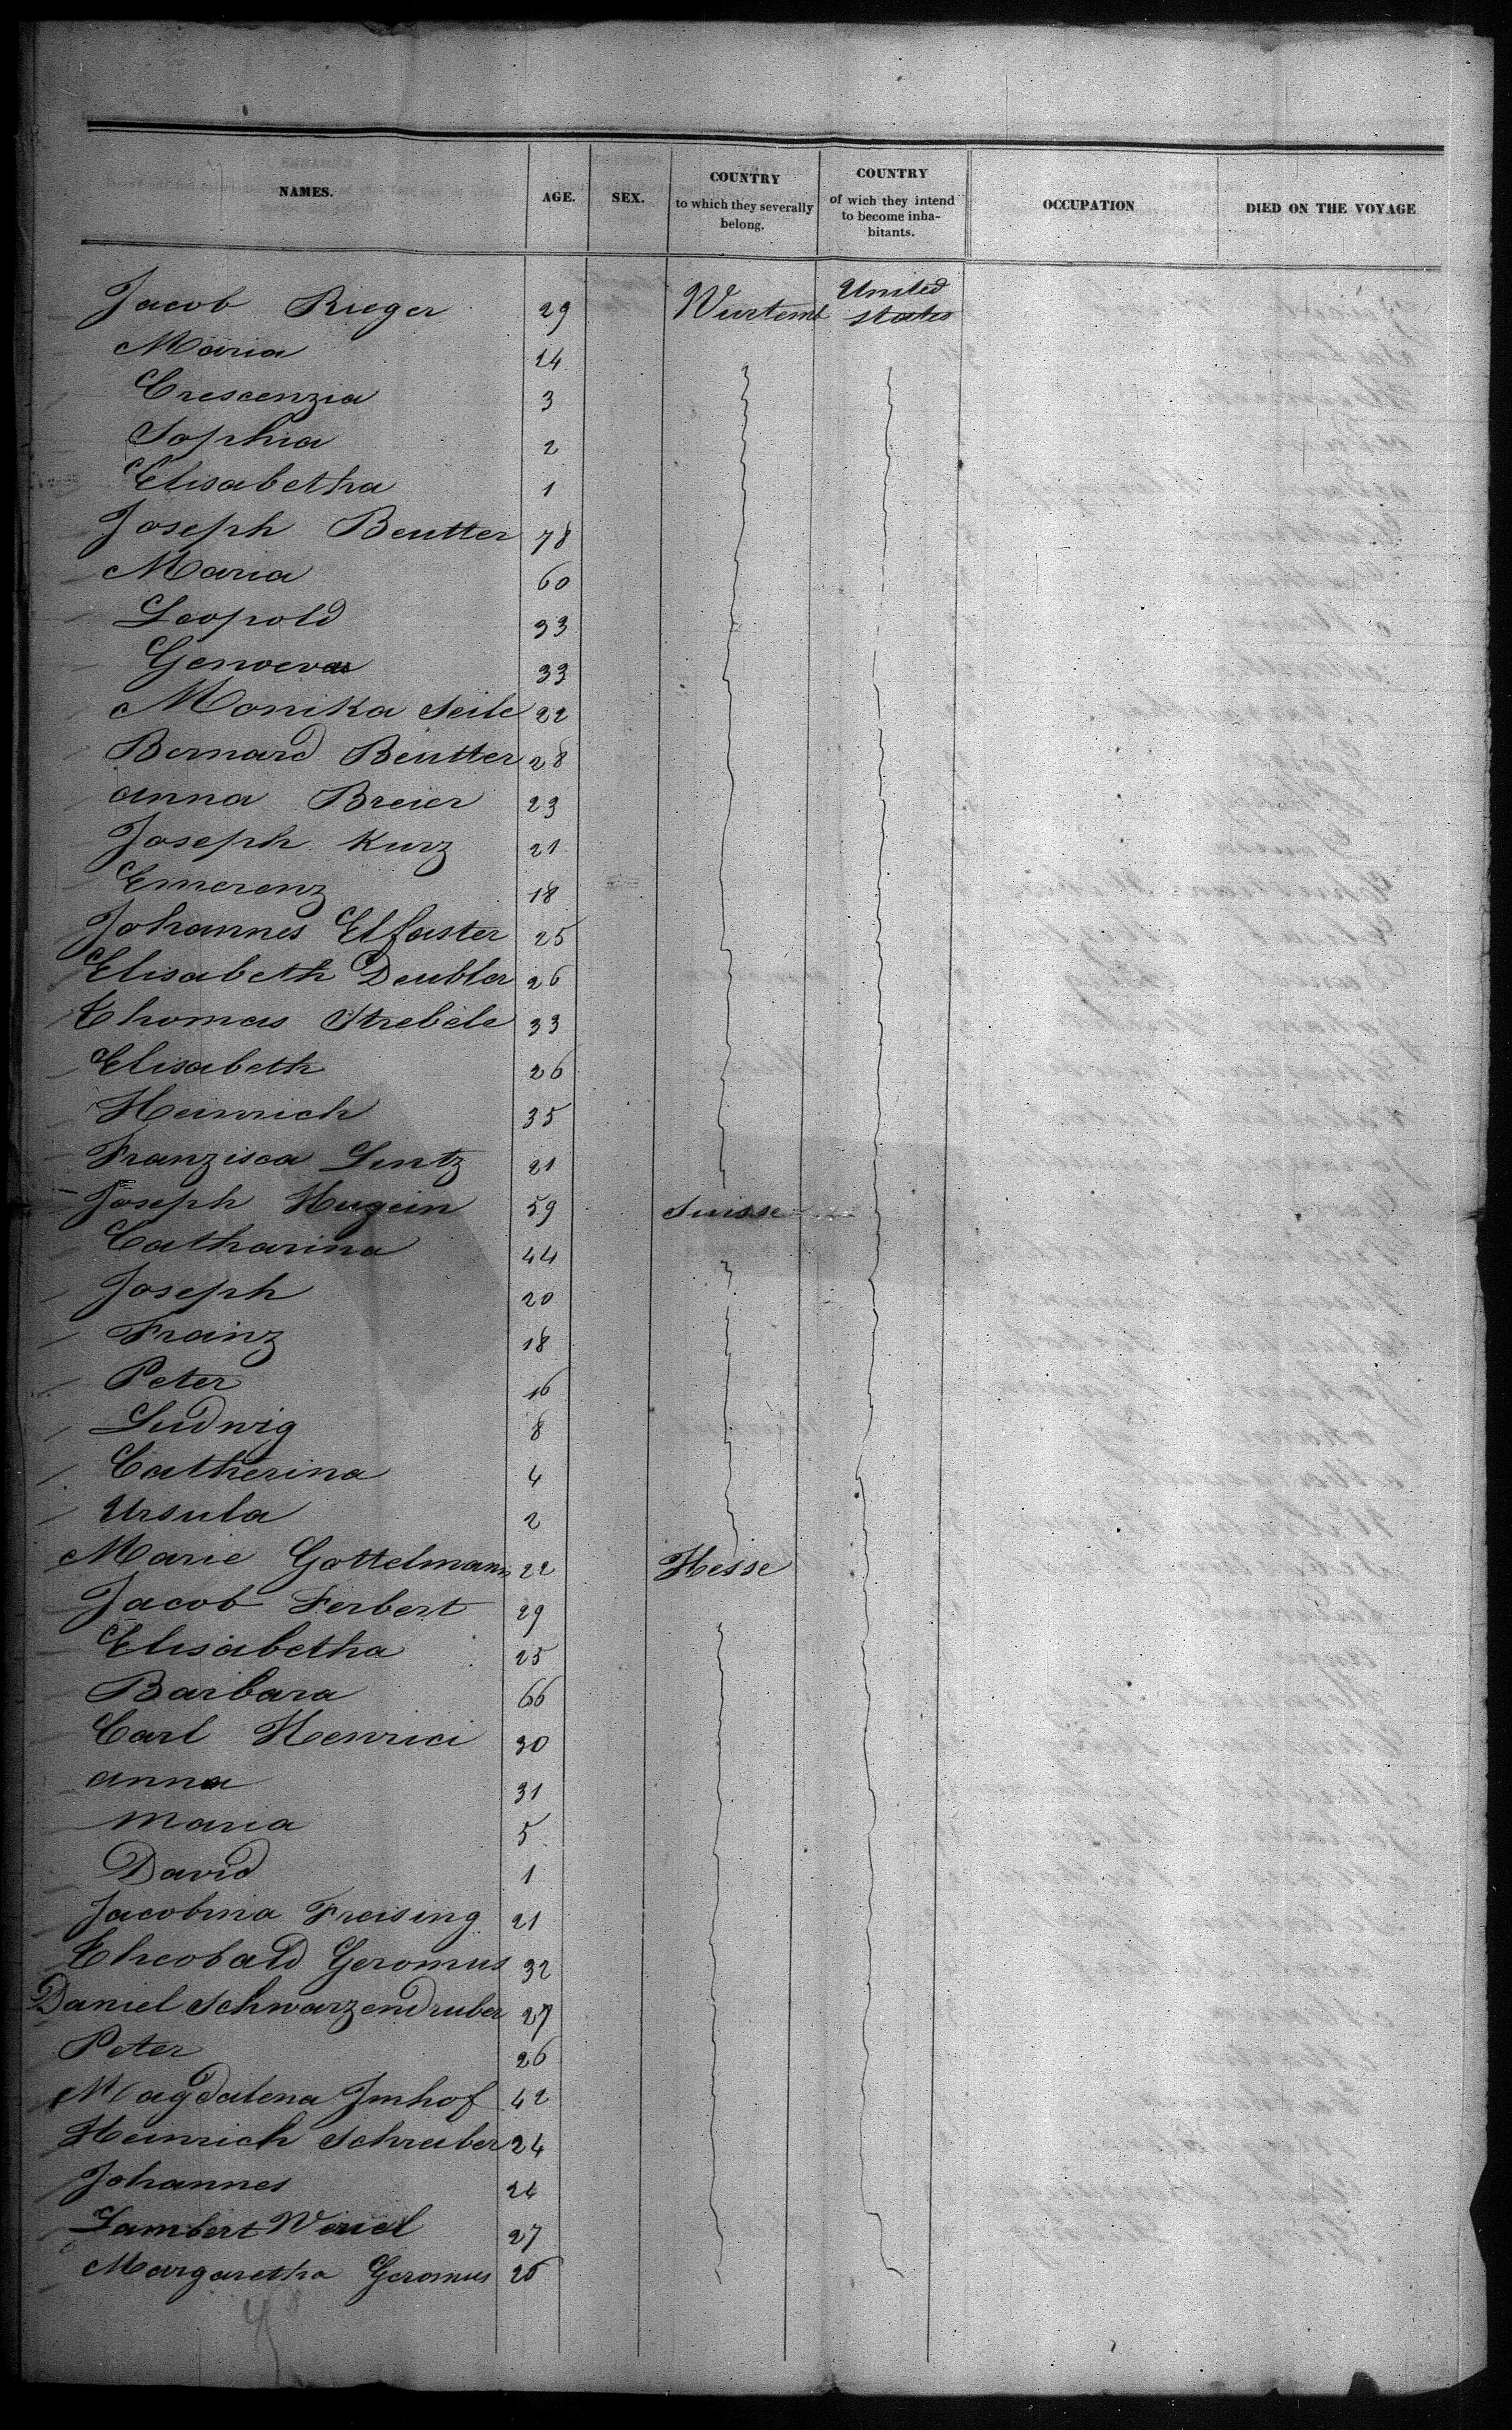 NAMES. AGE. SEX. COUNTRY to which they severally belong. COUNTRY of wich they intend to become inhabitants. OCCUPATION DIED ON THE VOYAGE
Jacob Rieger 29 Wurtemb United States
Maria 24
Crescenzia 3
Sophia 2
Elisabetha 1
Joseph Beutter 78
Maria 60
Leopold 33
Genoveva 33
Monika Seile 22
Bernard Beutter 28
Anna Breier 23
Joseph Kurz 21
Emerenz 18
Johannes Elfaster 25
Elisabeth Deubler 26
Thomas Strebele 33
Elisabeth 26
Heinrich 35
Franzisca Lintz 21
Joseph Hugein 59 Suisse
Catharina 44
Joseph 20
Franz 18
Peter 16
Ludwig 8
Catherina 4
Ursula 2
Marie Gottelmann 22 Hesse
Jacob Ferbert 29
Elisabetha 25
Barbara 66
Carl Henrici 30
Anna 31
Maria 5
David 1
Jacobina Freising 21
Theobald Geromus 32
Daniel Schwarzendruber 27
Peter 26
Magdalena Imhof 42
Heinrich Schreiber 24
Johannes
Lambert 27
Margaretha Geromus 26